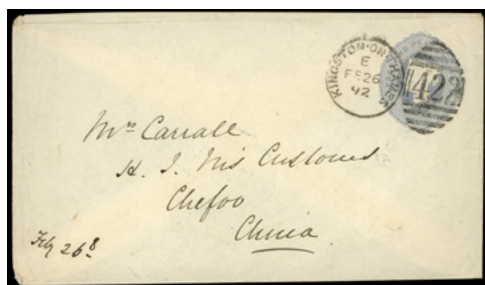 KINGSTON-ON-THAMES
E
FE 26
92
422
Mrs Carrall
H. I. M's Customs
Chefoo
China
Feby 26th